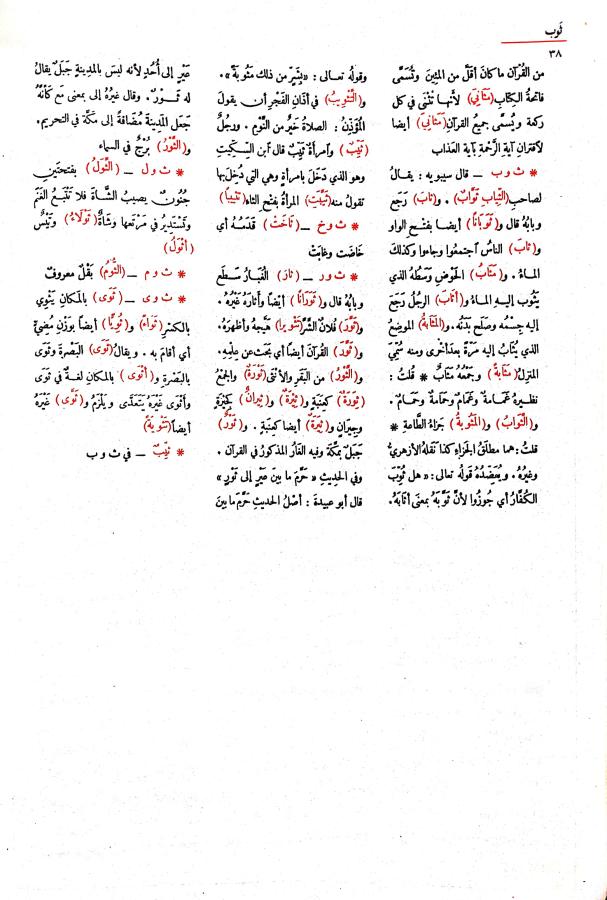 ثوب
٣٨
من القُرآن ماكان أقلّ من المئين وتُسَمَّى
فاتحةُ الكِتاب (مَثَانِيَ) لأنها تُثْنَى في كل
ركعة ويُسمَّى جميعُ القرآن (مَثَانِيَ) أيضا
لاقترانِ آيةِ الرَّحْمةِ بآية العذاب
* ث و ب – قال سيبويه : يقالُ
لصاحبِ (الثِّيابِ ثَوَّابٌ) . و(ثابَ) رَجَع
وبابُهُ قال و(ثَوَبَانًا) أيضا بفتح الواو
و(ثابَ) الناسُ آجتمعوا وجاءوا وكذلك
الماءُ . و(مَثَابُ) الحَوْضِ وَسَطُهُ الذي
يَثُوب إليه الماءُ و(أثَابَ) الرجُلُ رَجَعَ
إليه جِسْمُه وصَلَح بَدَنُه . و(المَثَابَةُ) الموضِعُ
الذي يُثَابُ إليه مَرَّةً بعدَ أخرى ومنه سُمِّيَ
المنزِلُ (مَثَابَةً) وجَمْعُه مَثَابٌ * قُلتُ :
نظيره غَمامَةٌ وغَمَامٌ وحَمامَةٌ وحَمَامٌ .
و(الثَّوَابُ) و(المَثُوبةُ) جَزاءُ الطاعةِ *
قلتُ : هما مطلَقُ الجزاءِ كذا نَقلهُ الأزهريُّ
وغيرُه . ويُعضِّدُهُ قولُه تعالى : « هل ثُوِّبَ
الكُفَّارُ أي جُوزُوا لأنّ ثَوَّبَهُ بمعنى أثَابَهُ .
وقولُهُ تعالى : « بِشَرٍّ من ذلك مَثُوبَةً » .
و(التَّثْوِيبُ) في أذَانِ الفَجْرِ أن يقولَ
المُؤَذِّنُ : الصلاةُ خَيْرٌ من النَّوْم . ورجُلٌ
(ثَيِّبٌ) وآمرأةٌ ثَيِّبٌ قال آبن السِّكِّيت
وهو الذي دَخَلَ بامرأةٍ وهي التي دُخِلَ بها
تقولُ منه (ثُيِّبَتِ) المرأةُ بفتْحِ الثاء (تَثْيِيبًا)
* ث و خ – (ثاخَتْ) قَدَمُهُ أي
خاضَت وغابَتْ
* ث و ر – (ثارَ) الغُبَارُ سَطَعَ
وبابُهُ قال و(ثَوَرَانًا) أيْضًا وأثارَهُ غَيْرُهُ .
و(ثَوَّرَ) فُلَانٌ الشَّرَّ (تَثْوِيرا) هَيَّجه وأظهرَهُ .
و(ثَوَّرَ) القُرآنَ أيضا أي بَحَثَ عن عِلْمِه .
و(الثَّوْرُ) من البَقَرِ والأنثَى (ثَوْرَةٌ) والجمْعُ
(ثِوَرَةٌ) كعِنَبَةٍ و(ثِيرَةٌ) و(ثِيرانٌ) كجِيرَةٍ
وجِيرَانٍ و(ثِيَرَةٌ) أيضا كعِنَبَة . و(ثَوْرٌ)
جَبَلٌ بمكّةَ وفيه الغارُ المذكورُ في القرآن .
وفي الحديثِ « حَرَّمَ ما بينَ عَيْرٍ إلى ثَوْرٍ »
قال أبو عبيدةَ : أصْلُ الحديثِ حَرَّم ما بينَ
عَيْرٍ إلى أُحُدٍ لأنه ليسَ بالمدينةِ جَبَلٌ يقالُ
له ثَوْرٌ . وقال غيرُهُ إلى بمعنى مَعَ كأنّهُ
جَعَل المدِينةَ مُضَافةً إلى مَكّةَ في التحريم .
و(الثَّوْرُ) بُرْجٌ في السماء
* ث و ل – (الثَّوَلُ) بفتحتين
جُنُونٌ يصيب الشَّاةَ فلا تَتْبَعُ الغَنَمَ
وتَسْتَدِيرُ في مَرْتَعِها وشاةٌ (ثَوْلَاءُ) وتَيْسٌ
(أَثْوَلُ)
* ث و م – (الثُّومُ) بَقْلٌ معروفٌ
* ث و ى – (ثَوَى) بالمكانِ يَثْوِي
بالكسْرِ (ثَوَاءً) و(ثُوِيًّا) أيضا بوَزْنِ مُضِيٍّ
أي أقامَ به . ويقالُ (ثَوَى) البَصْرةَ وثَوَى
بالبَصْرةِ و(أثْوَى) بالمكانِ لغةٌ في ثَوَى
وأثْوَى غَيْرَهُ يَتَعدَّى ويَلْزَمُ و(ثَوَّى) غَيْرَهُ
أيضا (تَثْوِيَةً)
* ثَيِّبٌ – في ث و ب